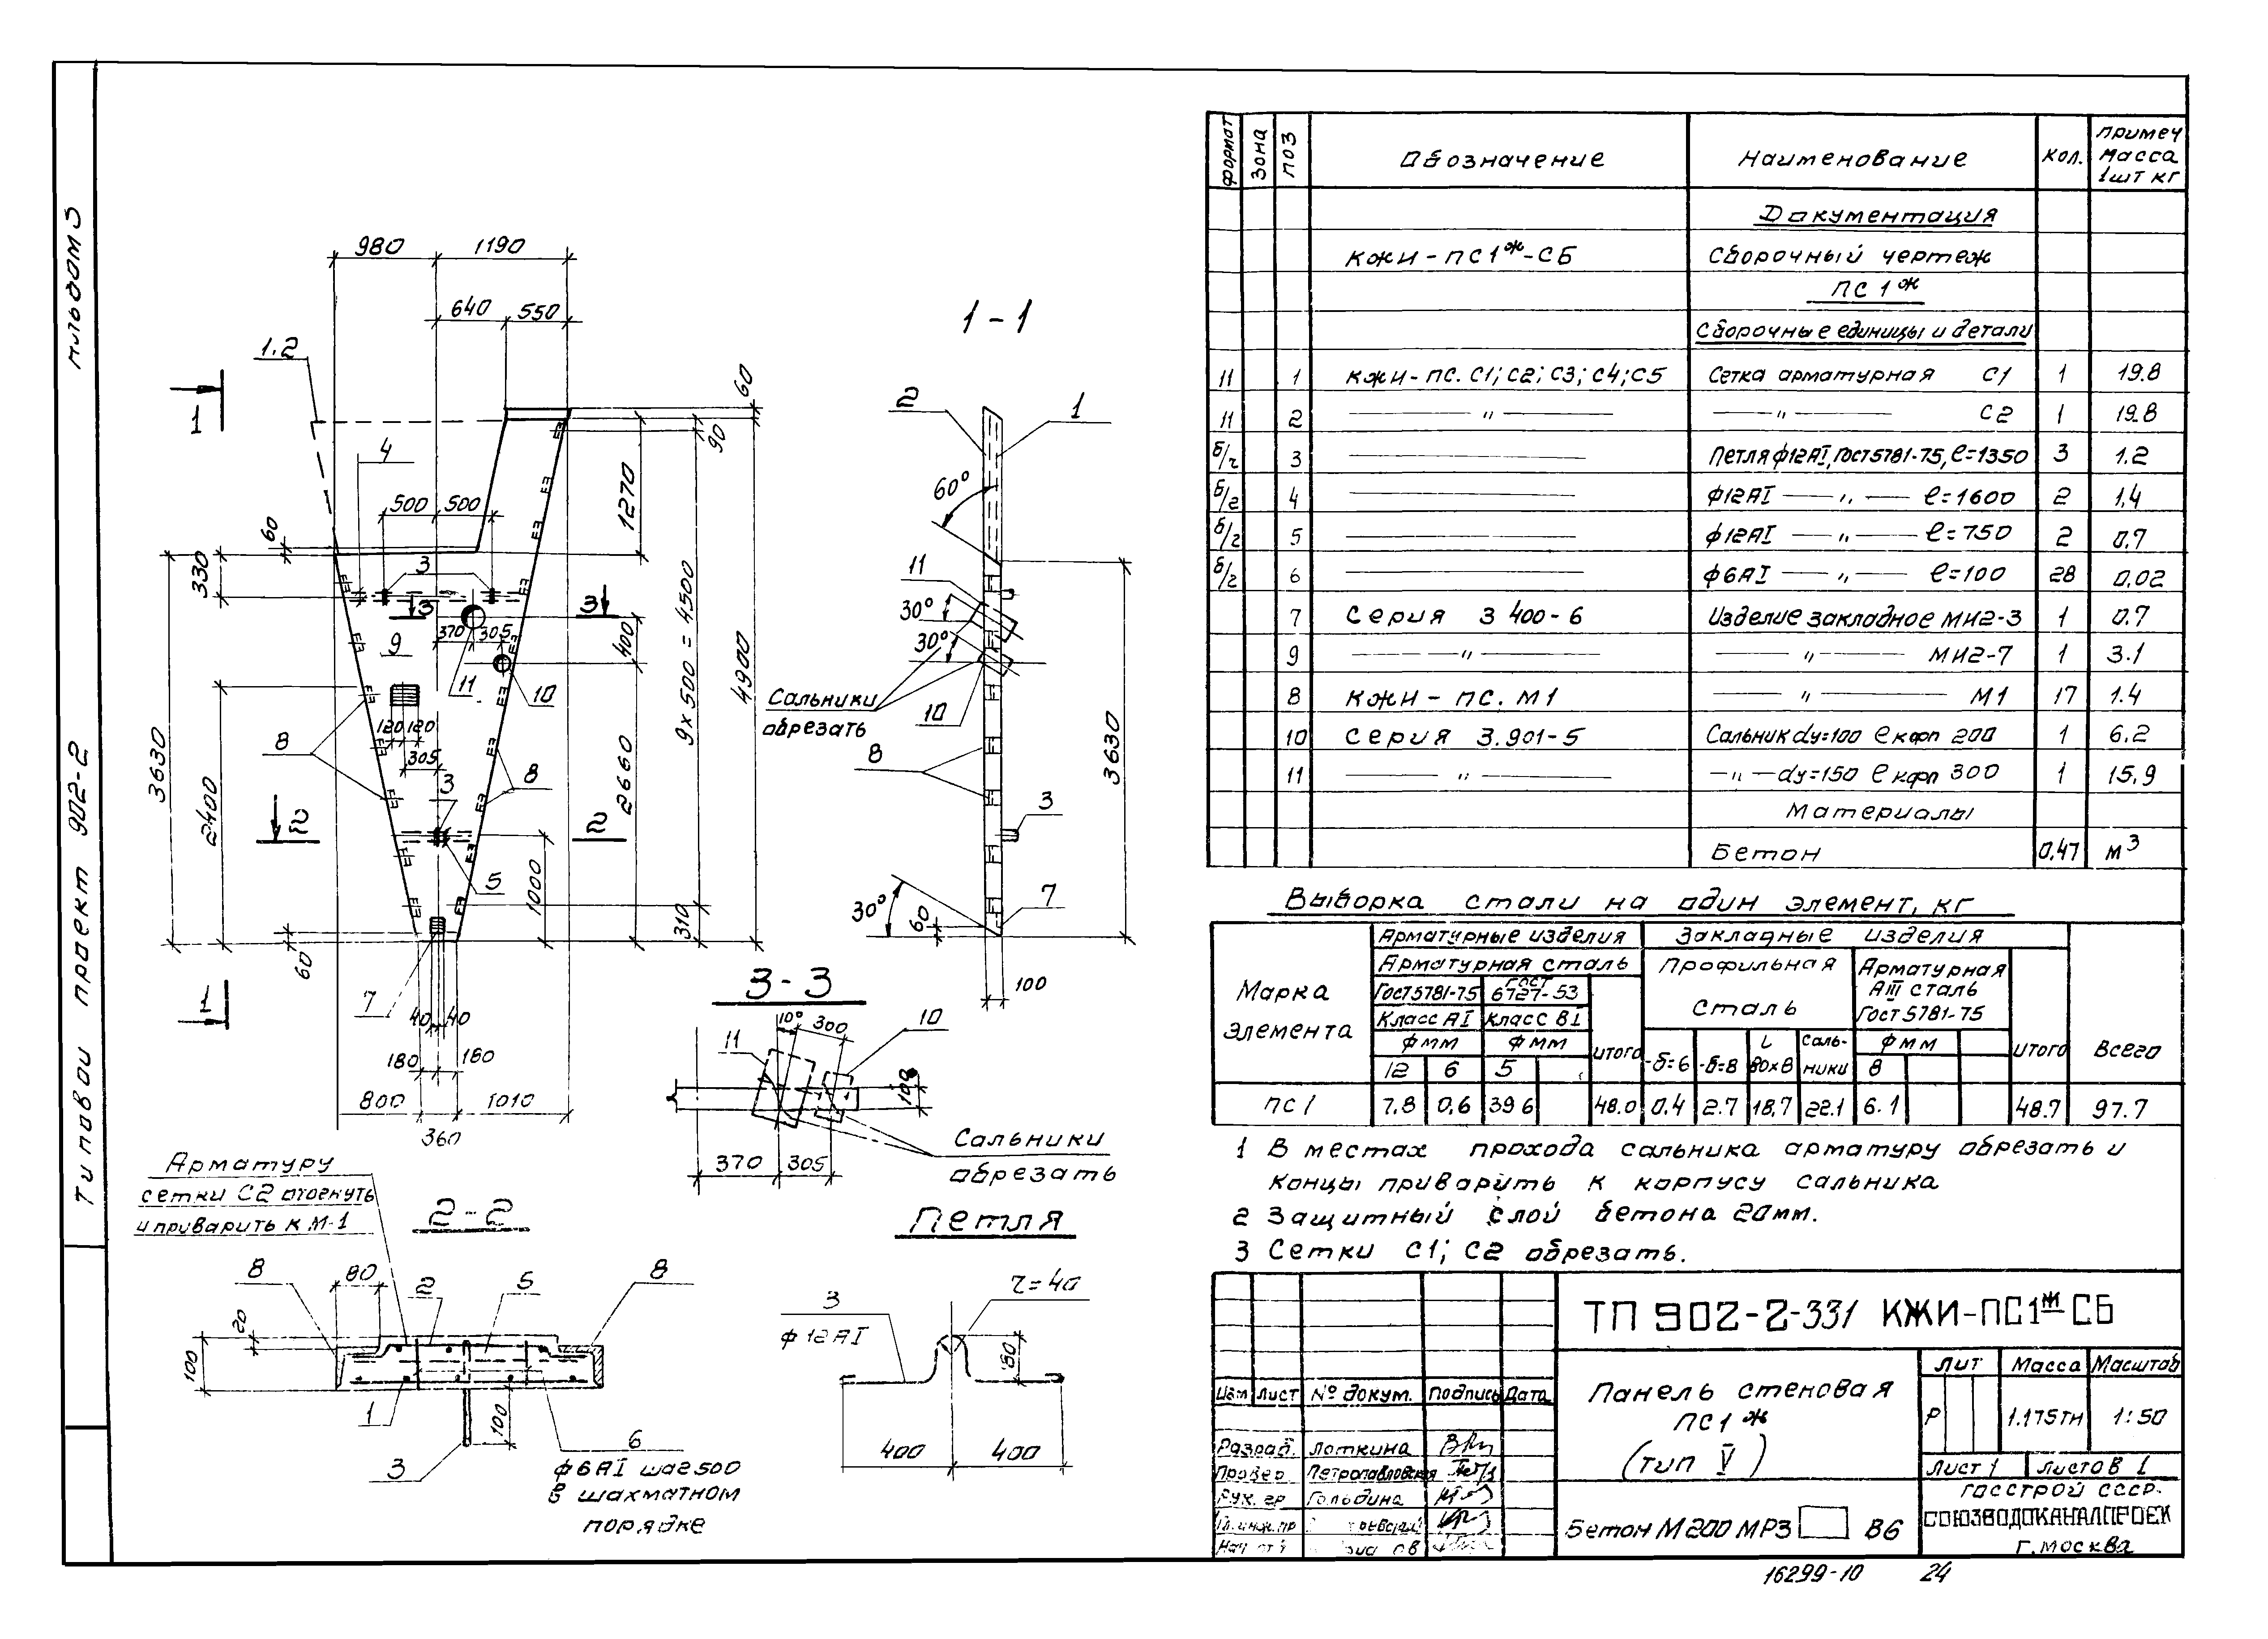 Альбом 5
Типовой проект 902-2
980
1190
640
550
1-1
1.2
1
60
4
2
1
500 500
90
60
1270
60°
330
3
11
3
3
30°
370 305
400
9
30°
9×500=4500
4900
11
10
Сальники
обрезать
10
120 120
8
305
8
8
3
3630
2400
3
2660
3630
2
2
3
5
1000
7
30°
60
310
60
7
3-3
100
1
40 40
10°
300
10
11
180
180
100
800
1010
360
370
305
Сальники
обрезать
Арматуру
сетки С2 отогнуть
и приварить к М-1
2-2
Петля
8
80
2
5
8
20
100
3
ф12АI
r=40
80
1
100
6
3
ф6АI шаг 500
в шахматном
порядке
400
400
Формат
Зона
Поз
Обозначение
Наименование
Кол.
Примеч
Масса
1шт кг
Документация
КЖИ-ПС1ж-СБ Сборочный чертеж
ПС1ж
Сборочные единицы и детали
11 1 КЖИ-ПС.С1; С2; С3; С4; С5 Сетка арматурная С1 1 19.8
11 2 — " — — " — С2 1 19.8
б/ч 3 Петля ф12АI, Гост5781-75, ℓ=1350 3 1.2
б/г 4 ф12АI — " — ℓ=1600 2 1,4
б/г 5 ф12АI — " — ℓ=750 2 0.7
б/г 6 ф6АI — " — ℓ=100 28 0,02
7 Серия 3 400-6 Изделие закладное МИ2-3 1 0.7
9 — " — — " — МИ2-7 1 3.1
8 КЖИ-ПС.М1 — " — М1 17 1.4
10 Серия 3.901-5 Сальник dу=100 ℓ корп 200 1 6.2
11 — " — — " — dу=150 ℓ корп 300 1 15,9
Материалы
Бетон 0,47 м³
Выборка стали на один элемент, кг
Марка
элемента
Арматурные изделия
Закладные изделия
Арматурная сталь
Профильная
сталь
Арматурная
АIII сталь
Гост 5781-75
Гост 5781-75
ГОСТ
6727-53
Класс АI
Класс ВI
ф мм
ф мм
ф мм
Итого
12
6
5
-δ=6
-δ=8
L
80×8
Саль-
ники
8
Итого
Всего
ПС1 7,8 0,6 39 6 48.0 0,4 2.7 18,7 22.1 6.1 48.7 97.7
1 В местах прохода сальника арматуру обрезать и
концы приварить к корпусу сальника
2 Защитный слой бетона 20мм.
3 Сетки С1; С2 обрезать.
ТП 902-2-331 КЖИ-ПС1ж СБ
Изм Лист № докум. Подпись Дата
Разраб. Лоткина
Провер Петропавловская
Рук. гр Гольдина
Гл.инж.пр
Панель стеновая
ПС1ж
(тип V)
Лит Масса Масштаб
Р 1.175тн 1:50
Лист 1 Листов 1
Бетон М200 МРЗ В6
Госстрой СССР.
СОЮЗВОДОКАНАЛПРОЕК
г. Москва
16299-10 24